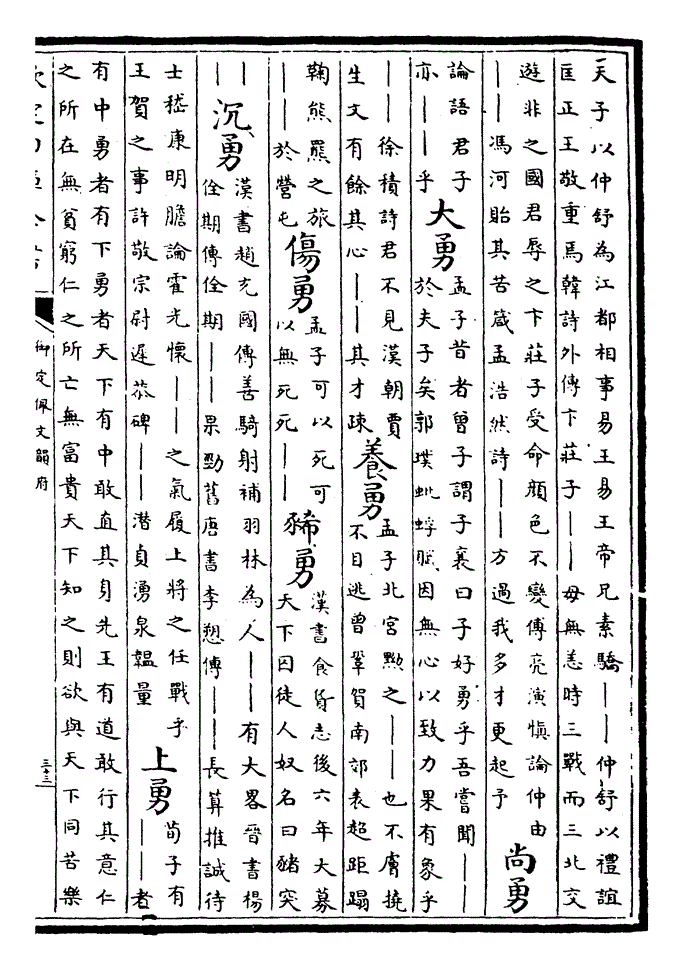 天子以仲舒為江都相事易王易王帝兄素驕——仲舒以禮誼
匡正王敬重焉韓詩外傳卞莊子——母無恙時三戰而三北交
遊非之國君辱之卞莊子受命顏色不變傅亮演慎論仲由
——馮河貽其苦箴孟浩然詩——方過我多才更起予
尚勇
論語君子
亦——乎
大勇
孟子昔者曾子謂子襄曰子好勇乎吾嘗聞——
於夫子矣郭璞蚍蜉賦因無心以致力果有象乎
——徐積詩君不見漢朝賈
生文有餘其心——其才疎
養勇
孟子北宮黝之——也不膚撓
不目逃曾鞏賀南郊表超距蹋
鞠熊羆之旅
——於營屯
傷勇
孟子可以死可
以無死死——
豨勇
漢書食貨志後六年大募
天下囚徒人奴名曰豬突
—
——
沉勇
漢書趙充國傳善騎射補羽林為人——有大畧晉書楊
佺期傳佺期——果勁舊唐書李愬傳——長算推誠待
士嵇康明膽論霍光懷——之氣履上將之任戰乎
王賀之事許敬宗尉遲恭碑——潛貞湧泉韞量
上勇
荀子有
——者
有中勇者有下勇者天下有中敢直其身先王有道敢行其意仁
之所在無貧窮仁之所亡無富貴天下知之則欲與天下同苦樂
欽定四庫全書
御定佩文韻府
三十三